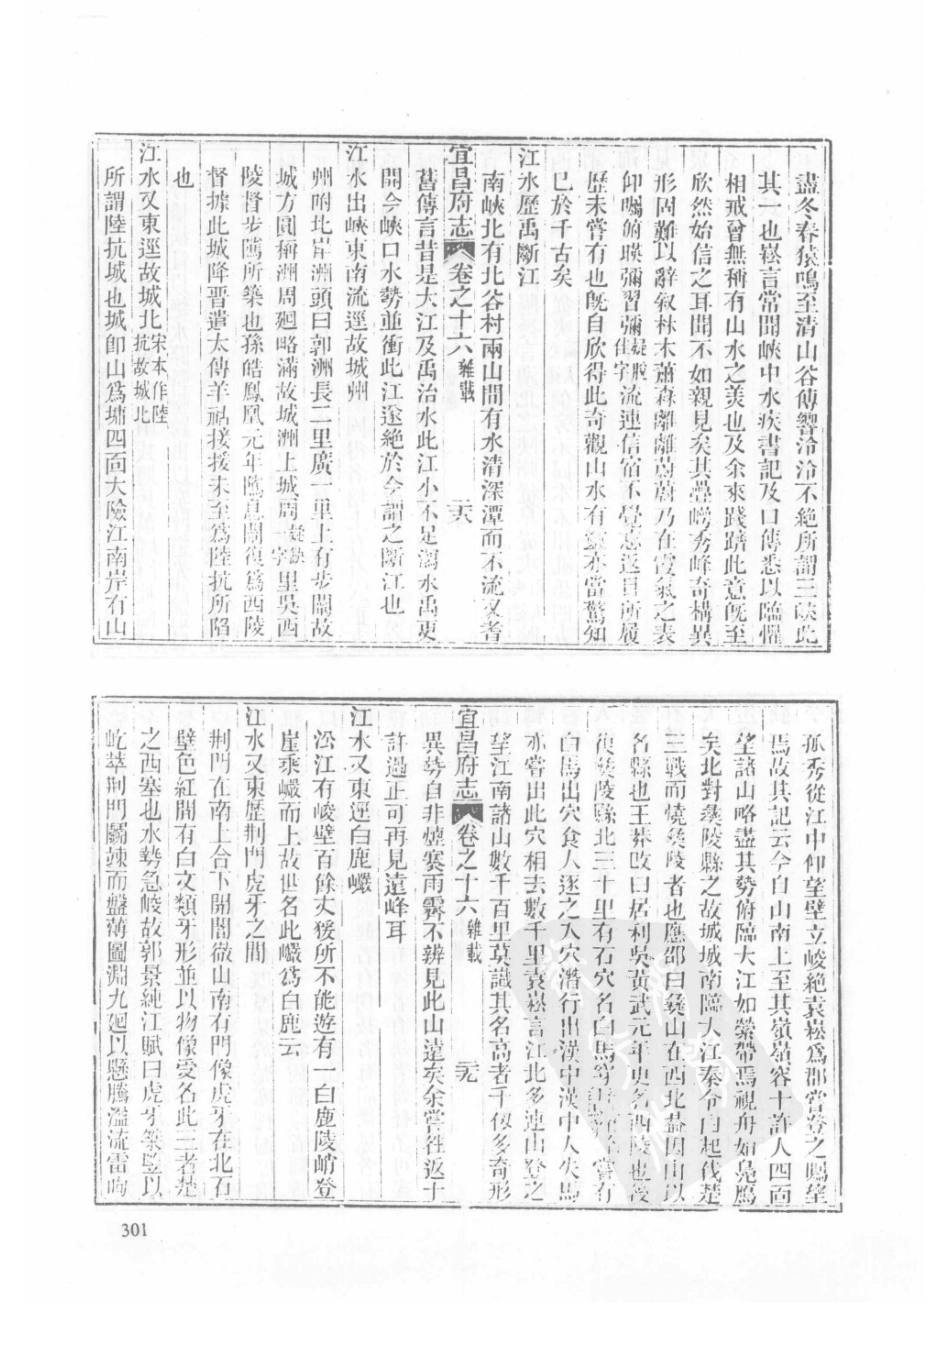 盡冬春猿鳴至清山谷傳響泠泠不絕所謂三峽此
其一也崧言常聞峽中水疾書記及口傳悉以臨懼
相戒曾無稱有山水之美也及余來踐躋此意旣至
欣然始信之耳聞不如親見矣其疊崿秀峰奇構異
形固難以辭敘林木蕭森離離蔚蔚乃在霞氣之表
仰矚俯暎彌習彌疑脫佳字流連信宿不覺忘返目所履
歷未嘗有也旣自欣得此奇觀山水有靈亦當驚知
巳於千古矣
江水歷禹斷江
南峽北有北谷村兩山間有水清深潭而不流又耆
宜昌府志 卷之十六 雜載 二六
舊傳言昔是大江及禹治水此江小不足瀉水禹更
開今峽口水勢並衝此江遂絕於今謂之斷江也
江水出峽東南流逕故城州
州附北岸洲頭曰郭洲長二里廣一里上有步闡故
城方圓稱洲周廻略滿故城洲上城周疑缺一字里吳西
陵督步隲所築也孫皓鳳凰元年隲息闡復爲西陵
督據此城降晋遣太傅羊祜接援未至爲陸抗所陷
也
江水又東逕故城北宋本作陸抗故城北
所謂陸抗城也城卽山爲墉四面大險江南岸有山
孤秀從江中仰望壁立峻絕袁崧爲郡嘗登之矚望
焉故其記云今自山南上至其嶺嶺容十許人四面
望諸山略盡其勢俯臨大江如縈帶焉視舟如鳧鴈
矣北對夷陵縣之故城城南臨大江秦令白起伐楚
三戰而燒夷陵者也應邵曰夷山在西北蓋因山以
名縣也王莽改曰居利吳黃武元年更名西陵也後
復夷陵縣北三十里有石穴名白馬穿嘗有
白馬出穴食人逐之入穴潛行出漢中漢中人失馬
亦嘗出此穴相去數千里袁崧言江北多連山登之
望江南諸山數千百里莫識其名高者千仭多奇形
宜昌府志 卷之十六 雜載 二九
異勢自非煙褰雨霽不辨見此山遠矣余嘗往返十
許過正可再見遠峰耳
江水又東逕白鹿巖
沿江有峻壁百餘丈猨所不能遊有一白鹿陵峭登
崖乘巘而上故世名此巖爲白鹿云
江水又東歷荆門虎牙之間
荆門在南上合下開闇徹山南有門像虎牙在北石
壁色紅間有白文類牙形並以物像受名此三者楚
之西塞也水勢急峻故郭景純江賦曰虎牙桀竪以
屹崒荆門闕竦而盤薄圓淵九廻以懸騰溢流雷呴
301